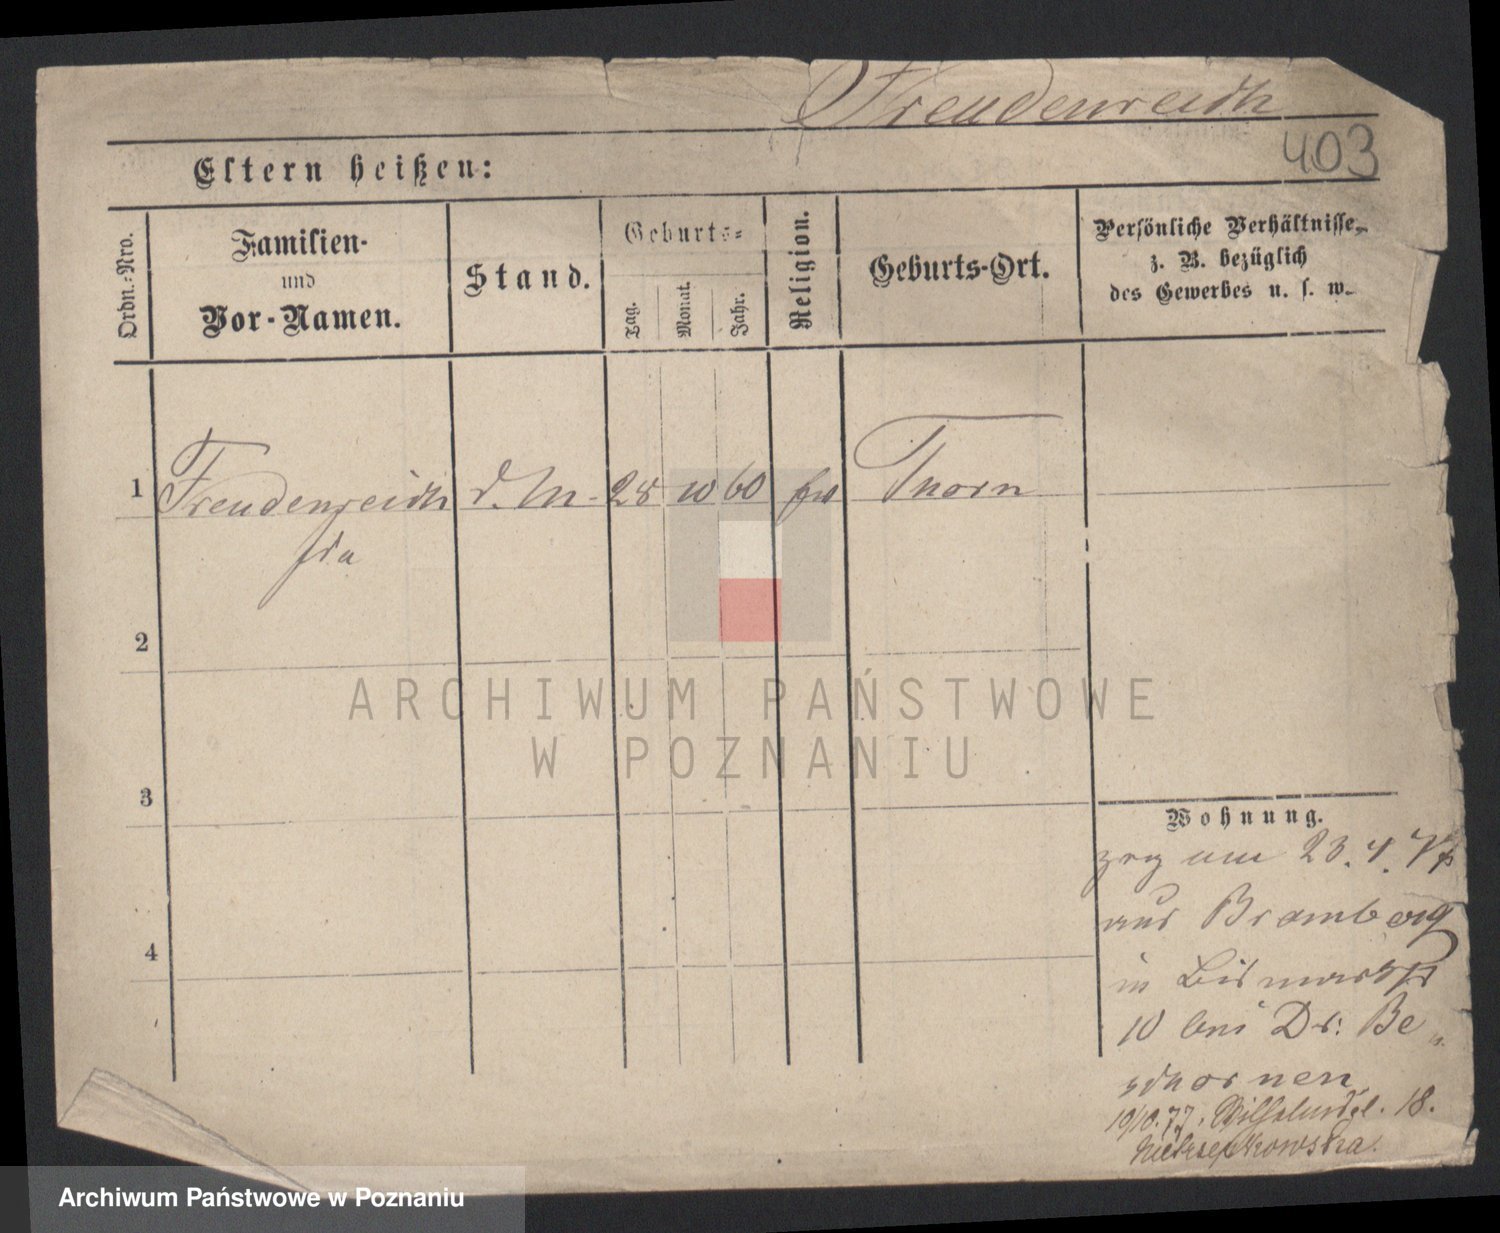 Freudenreich
403
Eltern heißen:
Ordn.-Nro.
Familien-
und
Vor-Namen.
Stand.
Geburts-
Tag.
Monat.
Jahr.
Religion.
Geburts-Ort.
Persönliche Verhältnisse,
z. B. bezüglich
des Gewerbes u. s. w.
1 Freudenreich d. M. 28 10 60 Thorn
Ida
2
3
4
Wohnung.
zog am 23. 4. 77
aus Bromberg
in Bismarckstr
10 bei Dr. Be
schornen
10/10.77. 18.
ARCHIWUM PAŃSTWOWE
W POZNANIU
Archiwum Państwowe w Poznaniu